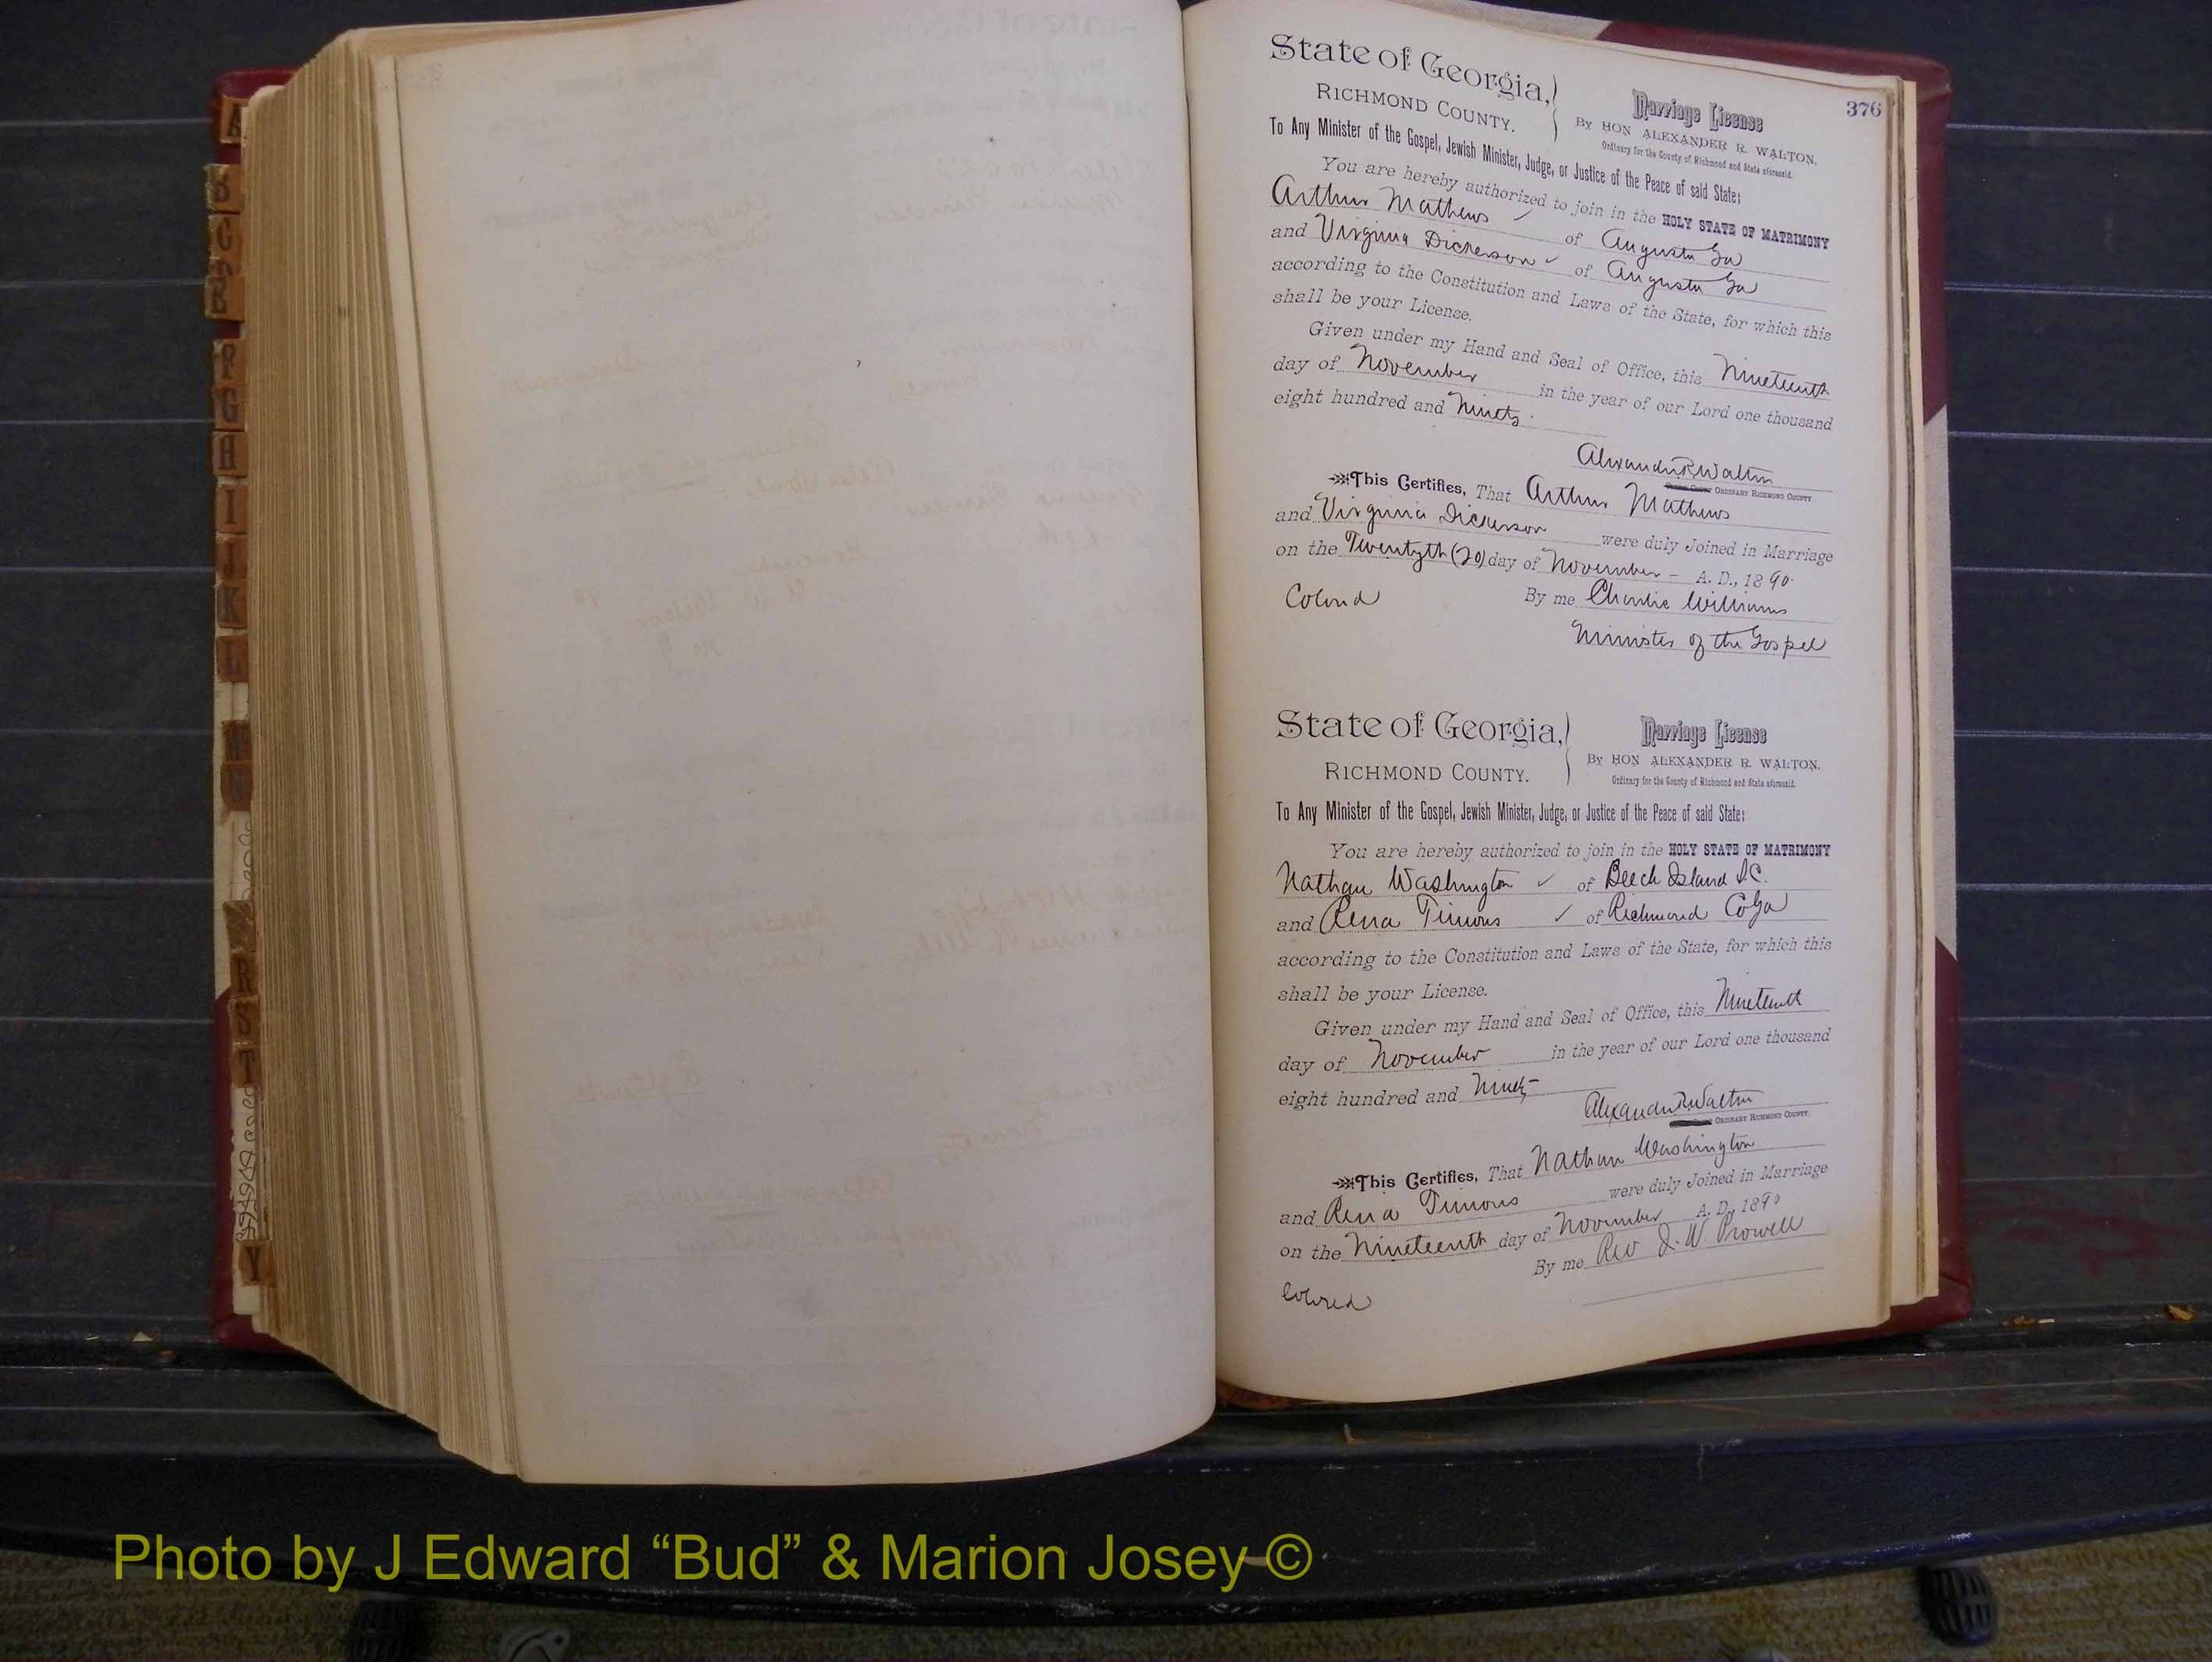 376
State of Georgia,
RICHMOND COUNTY.
Marriage License
BY HON ALEXANDER R. WALTON,
Ordinary for the County of Richmond and State aforesaid.
To Any Minister of the Gospel, Jewish Minister, Judge, or Justice of the Peace of said State:
You are hereby authorized to join in the HOLY STATE OF MATRIMONY
Arthur Mathews of Augusta Ga
and Virginia Dickerson of Augusta Ga
according to the Constitution and Laws of the State, for which this
shall be your License.
Given under my Hand and Seal of Office, this Nineteenth
day of November in the year of our Lord one thousand
eight hundred and Ninety.
Alexander R. Walton
ORDINARY RICHMOND COUNTY
This Certifies, That Arthur Mathews
and Virginia Dickerson were duly Joined in Marriage
on the Twentyth (20) day of November - A. D., 1890.
Colored By me Charlie Williams
Minister of the Gospel
State of Georgia,
RICHMOND COUNTY.
Marriage License
BY HON ALEXANDER R. WALTON,
Ordinary for the County of Richmond and State aforesaid.
To Any Minister of the Gospel, Jewish Minister, Judge, or Justice of the Peace of said State:
You are hereby authorized to join in the HOLY STATE OF MATRIMONY
Nathan Washington of Beech Island S.C.
and Rena Timons of Richmond Co Ga
according to the Constitution and Laws of the State, for which this
shall be your License.
Given under my Hand and Seal of Office, this Nineteenth
day of November in the year of our Lord one thousand
eight hundred and Ninety
Alexander R. Walton
ORDINARY RICHMOND COUNTY.
This Certifies, That Nathan Washington
and Rena Timons were duly Joined in Marriage
on the Nineteenth day of November A. D., 1890
By me Rev J. W Prowell
Colored
A
B
C
D
E
F
G
H
I
J
K
L
M
N
R
S
T
Y
Photo by J Edward “Bud” & Marion Josey ©